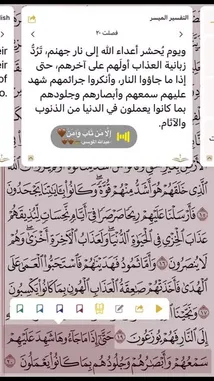 glish
التفسير الميسر
فصلت - ٢٠
ويوم يُحشر أعداء الله إلى نار جهنم، تَرُدُّ
زبانية العذاب أولَهم على آخرهم، حتى
إذا ما جاؤوا النار، وأنكروا جرائمهم شهد
عليهم سمعهم وأبصارهم وجلودهم
بما كانوا يعملون في الدنيا من الذنوب
والآثام.
إِلَّا مَن تَابَ وَآمَنَ
eir
eir
of
o.
ٱلَّذِى خَلَقَهُمْ هُوَ أَشَدُّ مِنْهُمْ قُوَّةً وَكَانُوا۟ بِـَٔايَـٰتِنَا يَجْحَدُونَ
فَأَرْسَلْنَا عَلَيْهِمْ رِيحًا صَرْصَرًا فِىٓ أَيَّامٍ نَّحِسَاتٍ لِّنُذِيقَهُمْ
عَذَابَ ٱلْخِزْىِ فِى ٱلْحَيَوٰةِ ٱلدُّنْيَا وَلَعَذَابُ ٱلْـَٔاخِرَةِ أَخْزَىٰ وَهُمْ
لَا يُنصَرُونَ وَأَمَّا ثَمُودُ فَهَدَيْنَـٰهُمْ فَٱسْتَحَبُّوا۟ ٱلْعَمَىٰ عَلَى
ٱلْهُدَىٰ فَأَخَذَتْهُمْ صَـٰعِقَةُ ٱلْعَذَابِ ٱلْهُونِ بِمَا كَانُوا۟ يَكْسِبُونَ
إِلَى ٱلنَّارِ فَهُمْ يُوزَعُونَ حَتَّىٰٓ إِذَا مَا جَآءُوهَا شَهِدَ عَلَيْهِمْ
سَمْعُهُمْ وَأَبْصَـٰرُهُمْ وَجُلُودُهُم بِمَا كَانُوا۟ يَعْمَلُونَ